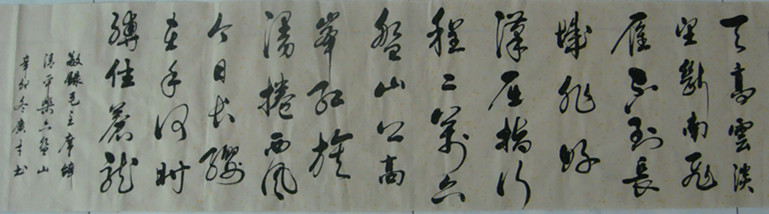 天高雲淡
望斷南飛
雁不到長
城非好
漢屈指行
程二萬六
盤山上高
峯紅旗
漫捲西風
今日長纓
在手何時
縛住蒼龍
敬錄毛主席詞
清平樂六盤山
辛卯冬廣才書